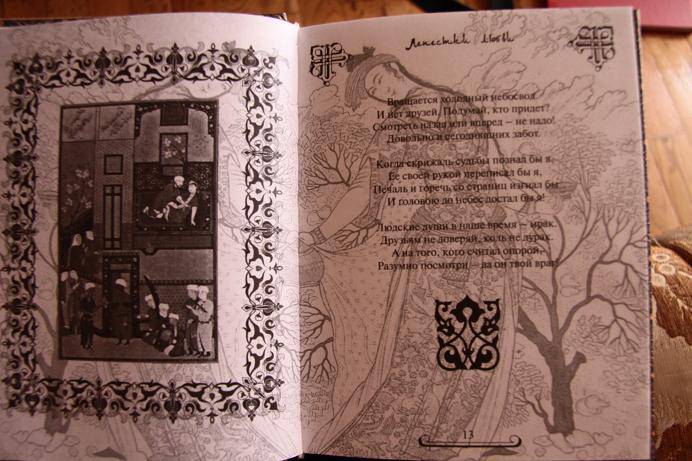 Лепестки любви
Вращается холодный небосвод
И нет друзей. Подумай, кто придет?
Смотреть назад или вперед – не надо!
Довольно и сегодняшних забот.
Когда скрижаль судьбы познал бы я,
Ее своей рукой переписал бы я,
Печаль и горечь со страниц изгнал бы
И головою до небес достал бы я!
Людские души в наше время – мрак.
Друзьям не доверяй, коль не дурак.
А на того, кого считал опорой,
Разумно посмотри – да он твой враг.
13